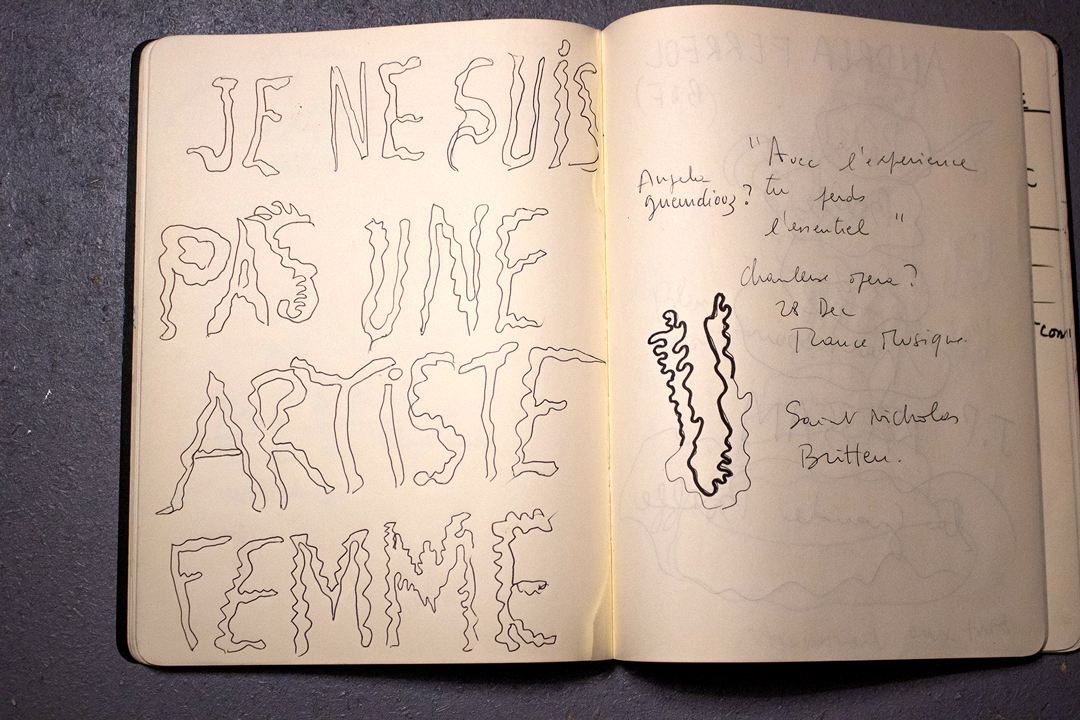 JE NE SUIS
PAS UNE
ARTISTE
FEMME
"Avec l'experience
tu perds
l'essentiel"
Angela
?
chanteuse opera?
28 Dec
France Musique.
Saint Nicholas
Britten.
ANDREA FERREOL
"COM